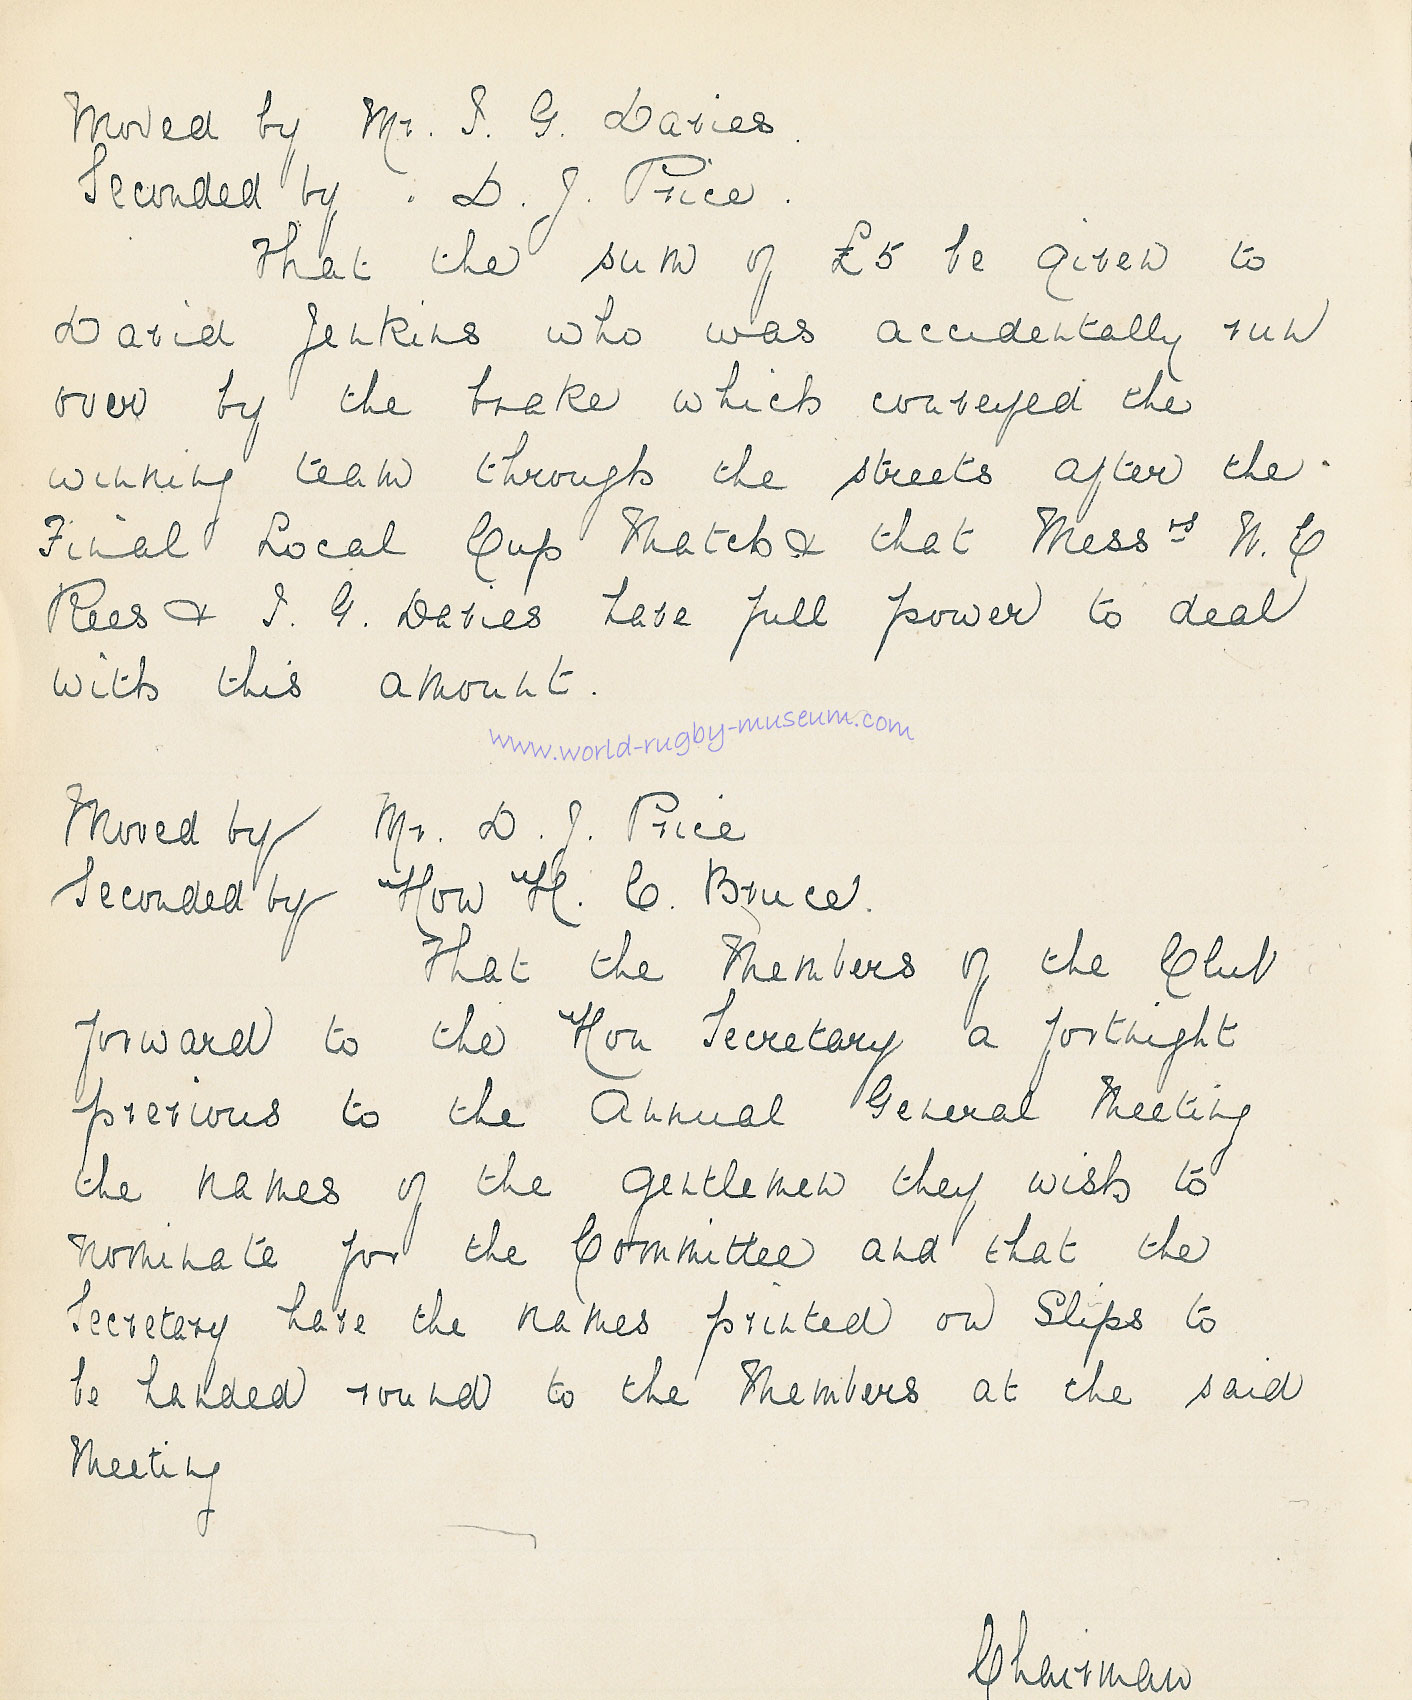 Moved by Mr. I. G. Davies.
Seconded by . D. J. Price.
That the sum of £5 be given to
David Jenkins who was accidentally run
over by the brake which conveyed the
winning team through the streets after the
Final Local Cup Match & that Messrs W. C
Rees & I. G. Davies have full power to deal
with this amount.
www.world-rugby-museum.com
Moved by Mr. D. J. Price
Seconded by Hon H. C. Bruce.
That the Members of the Club
forward to the Hon Secretary a fortnight
previous to the Annual General Meeting
the names of the gentlemen they wish to
nominate for the Committee and that the
Secretary have the names printed on Slips to
be handed round to the Members at the said
Meeting
Chairman